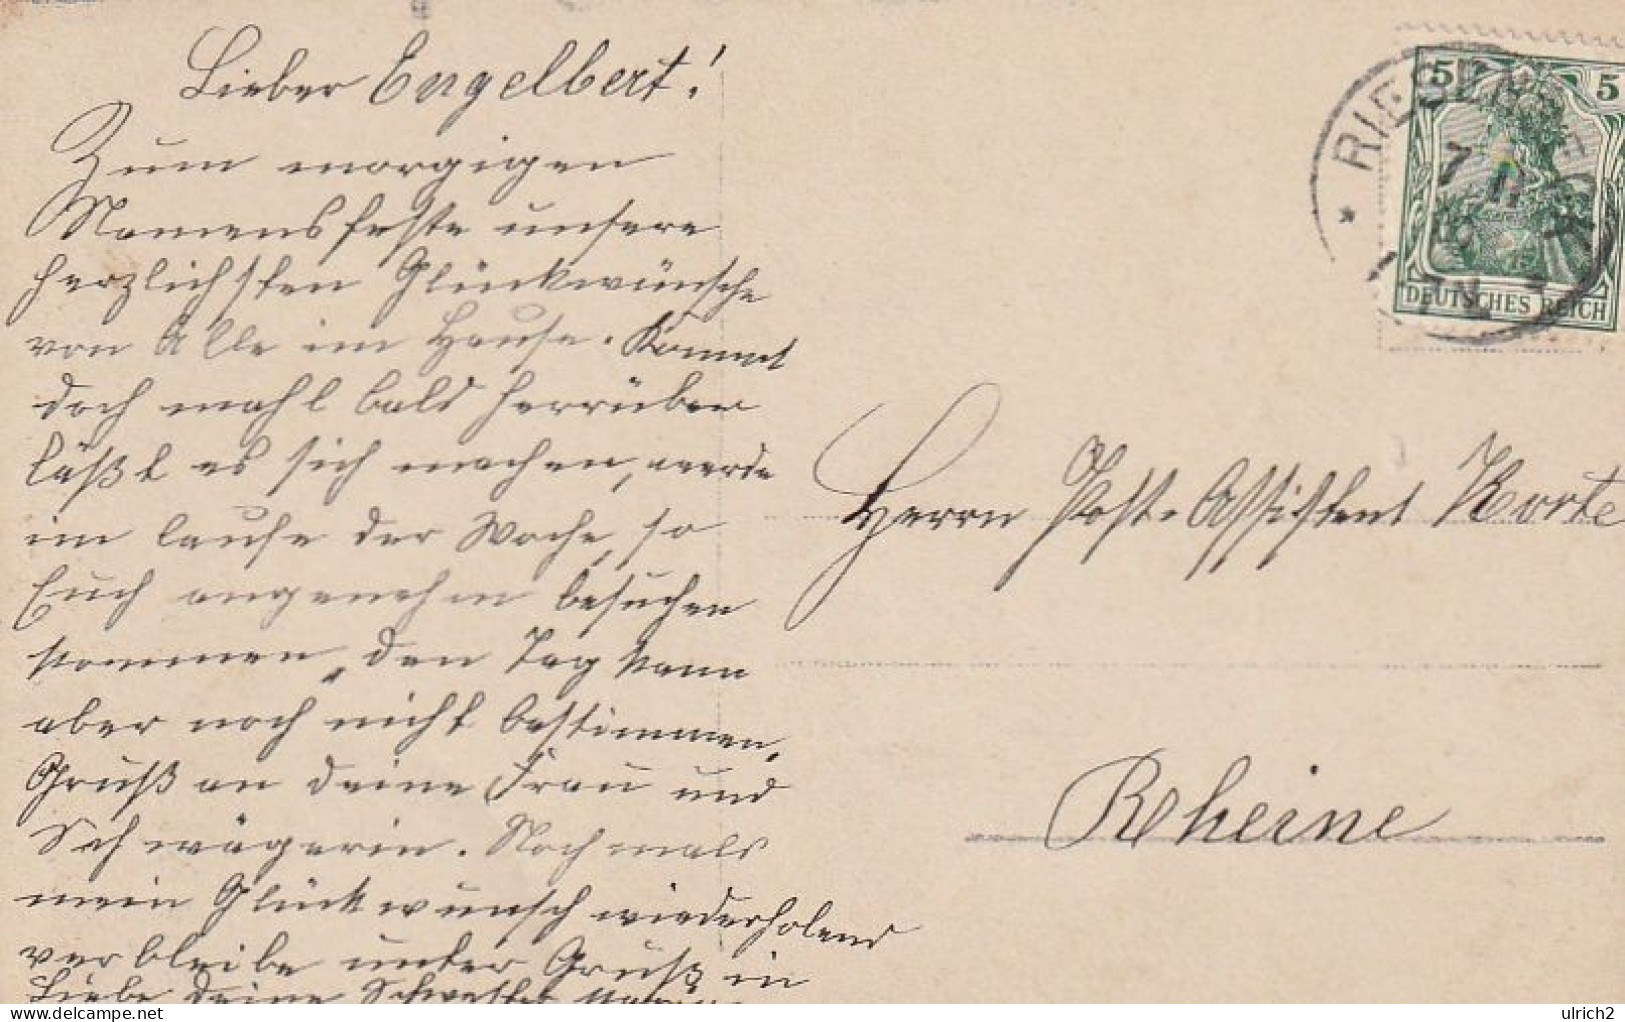 Lieber Engelbert!
Zum morgigen
Namensfeste unsere
herzlichsten Glückwünsche
von Alle im Hause. Kommt
doch mahl bald herrüber
läßt es sich machen, werde
im laufe der Woche, so
Euch angenehm besuchen
kommen, den Tag kann
aber noch nicht bestimmen,
Gruß an deine Frau und
Schwägerin. Nochmals
mein Glückwunsch wiederholend
verbleibe unter Gruß in
Liebe deine Schwester
RIESENB
7 11
5 5
DEUTSCHES REICH
Herrn Post-Assistent Korte
Rheine
delcampe.net
ulrich2